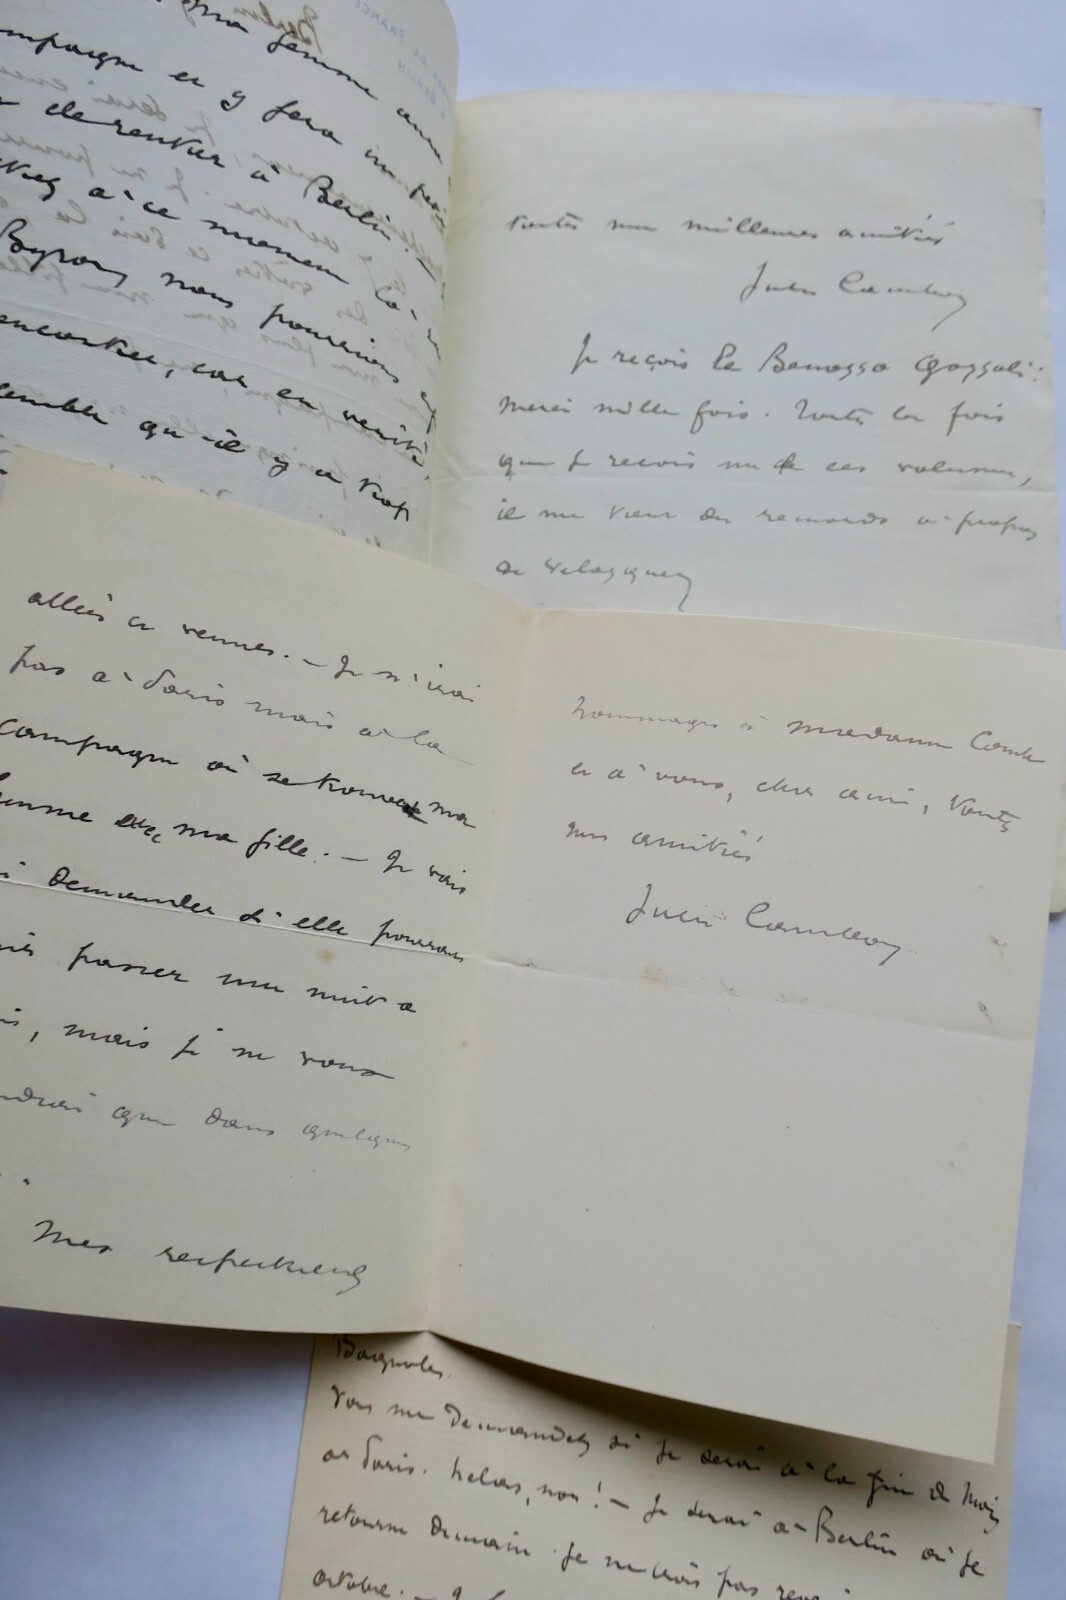 Ma femme aura
campagne et y fera un peu
de rentrer à Berlin. —
à ce moment là
Byron, nous pourrions
rencontrer, car en vérité,
semble qu'il y a trop
Berlin
DE FRANCE
BERLIN
toutes mes meilleures amitiés
Jules Cambon
Je reçois le Benozzo Gozzoli:
merci mille fois. Toutes les fois
que je reçois un de ces volumes,
il me vient des remords à propos
de Velazquez
alliés à Rennes. — Je n'irai
pas à Paris mais à la
campagne où se trouve ma
femme avec ma fille. — Je vais
demander si elle pourrait
passer une nuit à
, mais je ne vous
que dans quelques
Mes respectueux
hommages à Madame Comte
et à vous, cher ami, toutes
mes amitiés
Jules Cambon
Bagnoles.
Vous me demandez si je serai à la fin de Mai
à Paris. Hélas, non! — Je serai à Berlin où je
retourne demain. Je ne crois pas
octobre. —